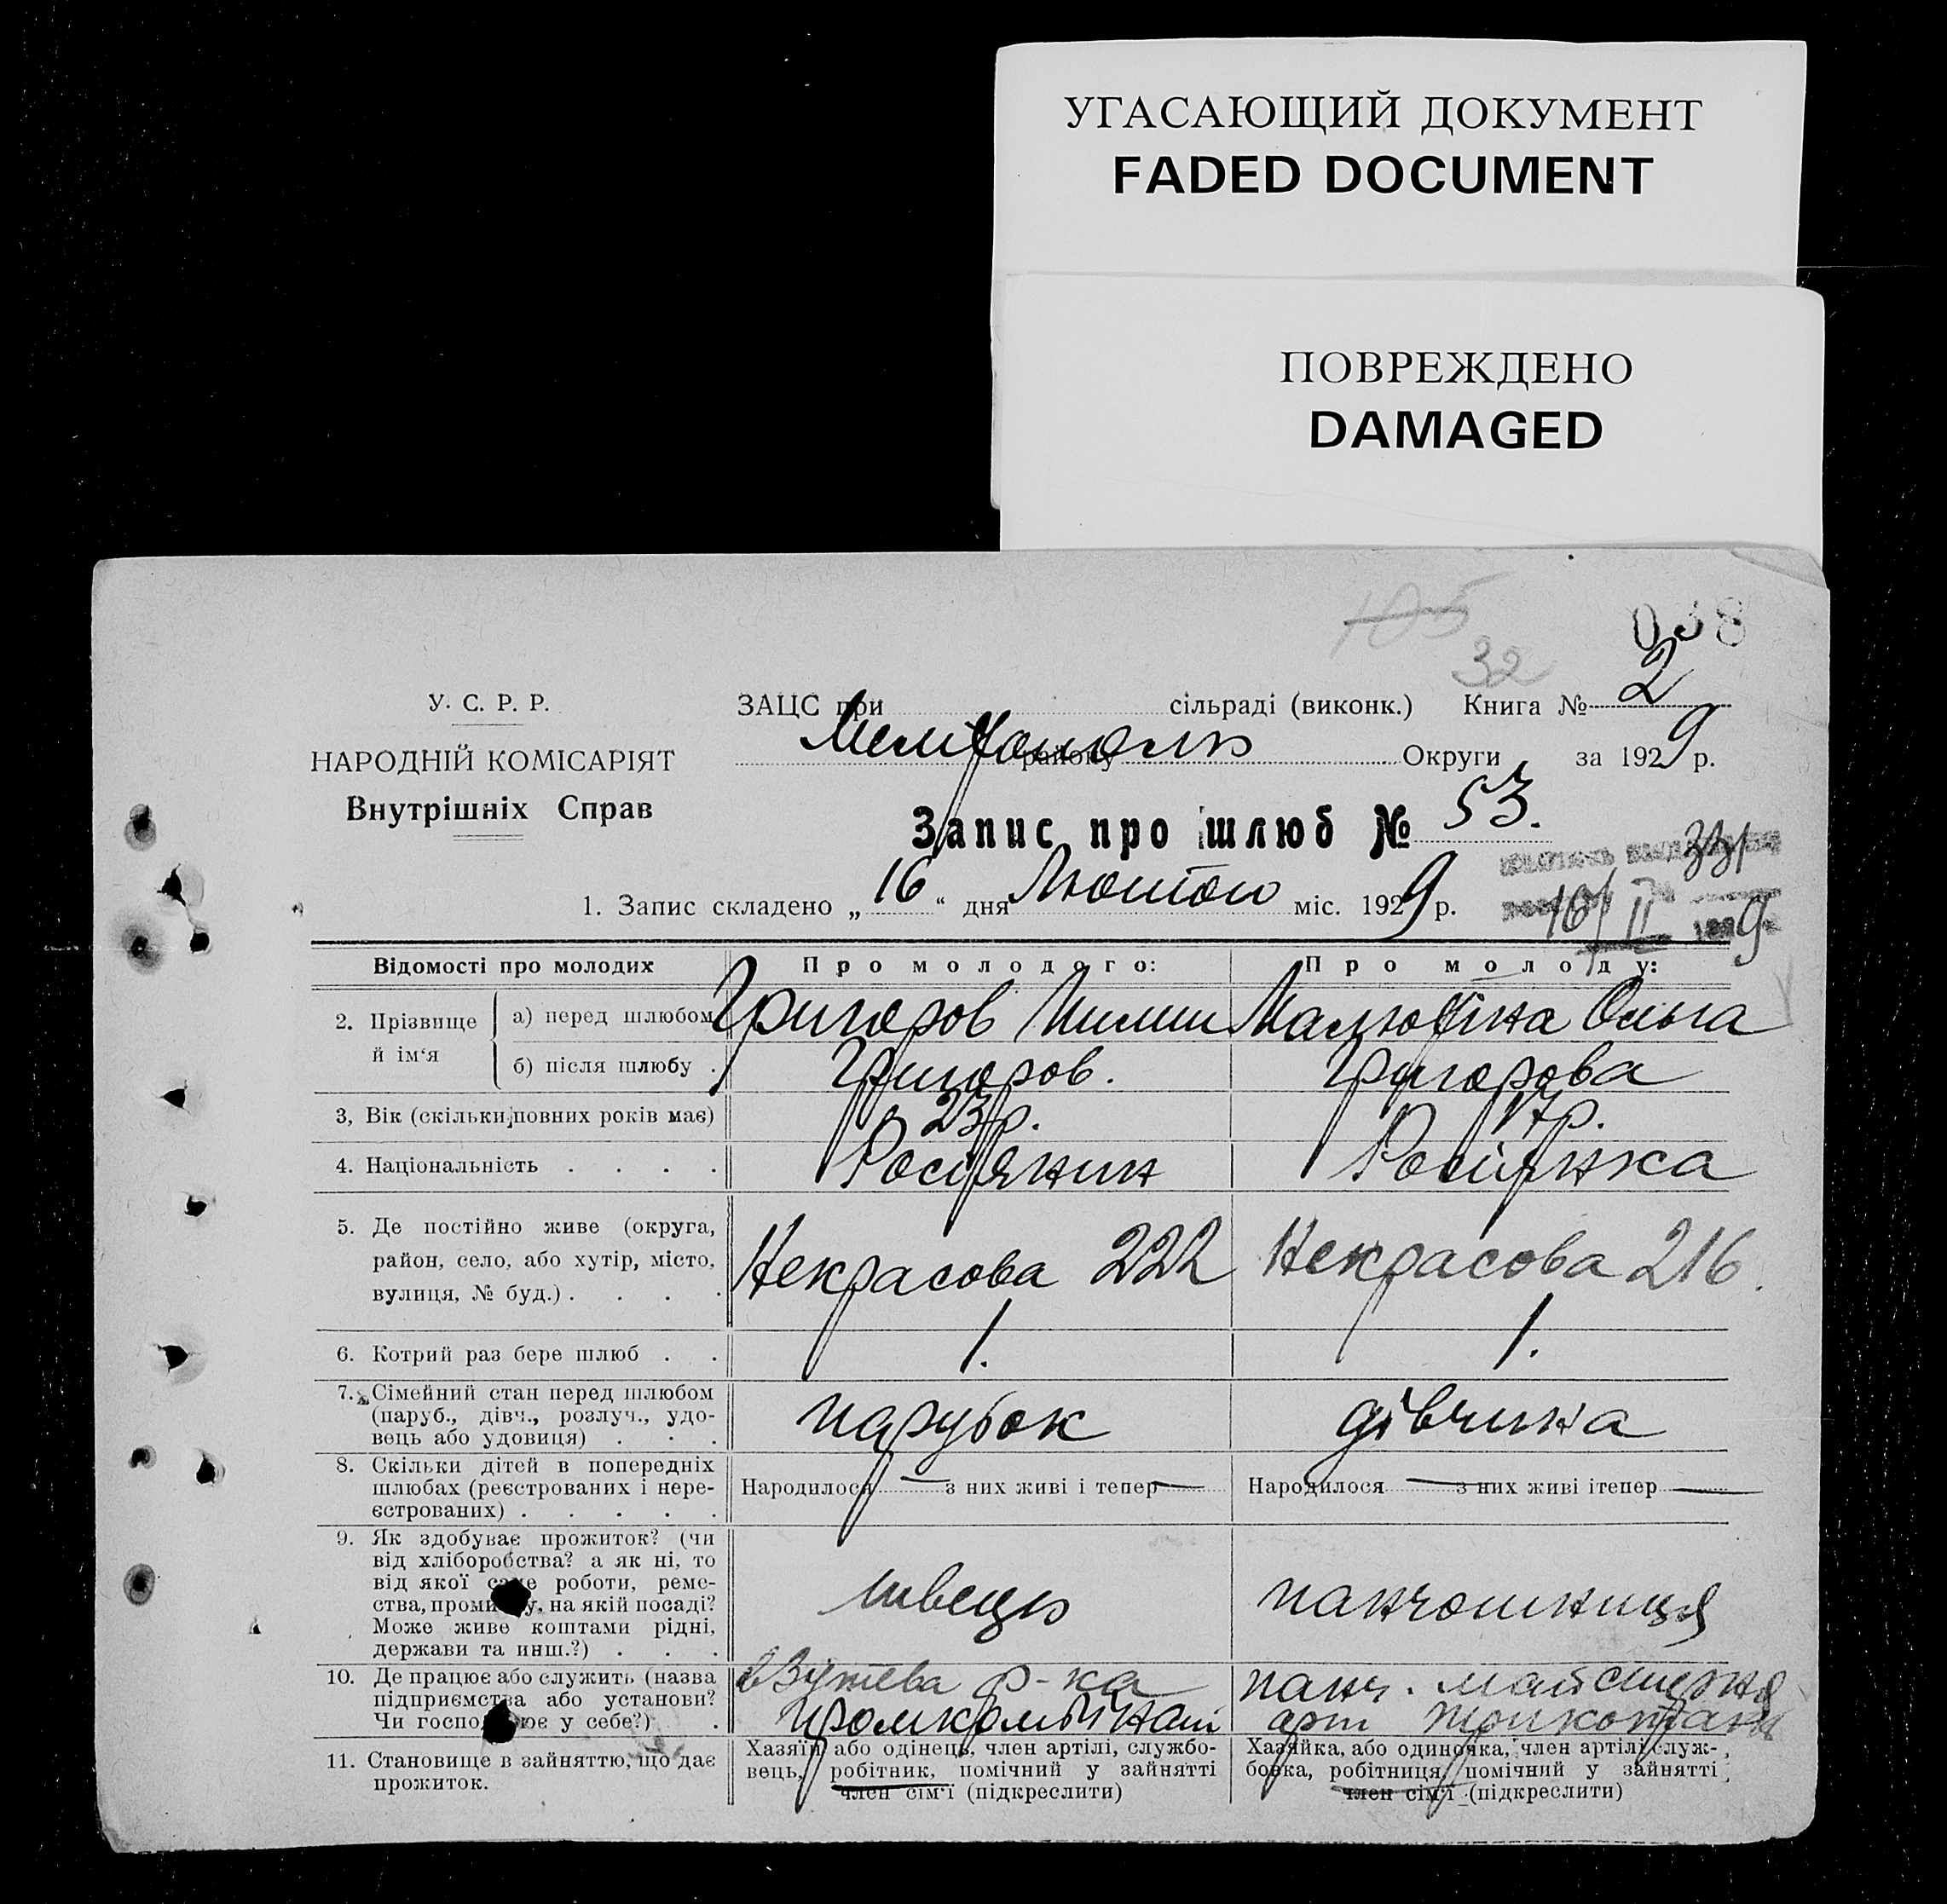 УГАСАЮЩИЙ ДОКУМЕНТ
FADED DOCUMENT
ПОВРЕЖДЕНО
DAMAGED
105
038
32
У. С. Р. Р.
ЗАЦС при сільраді (виконк.) Книга № 2
НАРОДНІЙ КОМІСАРІЯТ
Мелітополь району Округи за 1929 р.
Внутрішніх Справ
Запис про шлюб № 53.
331
1. Запис складено „16“ дня Лютого міс. 1929 р.
16/II 9
Відомості про молодих
Про молодого:
Про молоду:
2. Прізвище й ім‘я
а) перед шлюбом
Григоров Пилип
Ольга
б) після шлюбу .
Григоров.
Григорова
3, Вік (скільки повних років має)
23р.
17р.
4. Національність . . . .
Росіянин
Росіянка
5. Де постійно живе (округа,
район, село, або хутір, місто,
вулиця, № буд.) . . . .
Некрасова 222
Некрасова 216.
6. Котрий раз бере шлюб . .
1.
1.
7. Сімейний стан перед шлюбом
(паруб., дівч., розлуч., удо-
вець або удовиця) . . .
парубок
дівчина
8. Скільки дітей в попередніх
шлюбах (реєстрованих і нере-
єстрованих) . . . . .
Народилося — з них живі і тепер —
Народилося — з них живі ітепер —
9. Як здобуває прожиток? (чи
від хліборобства? а як ні, то
від якої саме роботи, реме-
ства, промислу, на якій посаді?
Може живе коштами рідні,
держави та инш.?) . . .
швець
панчошниця
10. Де працює або служить (назва
підприємства або установи?
Чи господарює у себе?) .
Взутева ф-ка
панч. майстерня
арт
11. Становище в зайняттю, що дає
прожиток.
Хазяїн або одінець, член артілі, службо-
вець, робітник, помічний у зайнятті
член сім‘ї (підкреслити)
Хазяйка, або одиночка, член артілі служ-
бовка, робітниця, помічний у зайнятті
член сім‘ї (підкреслити)